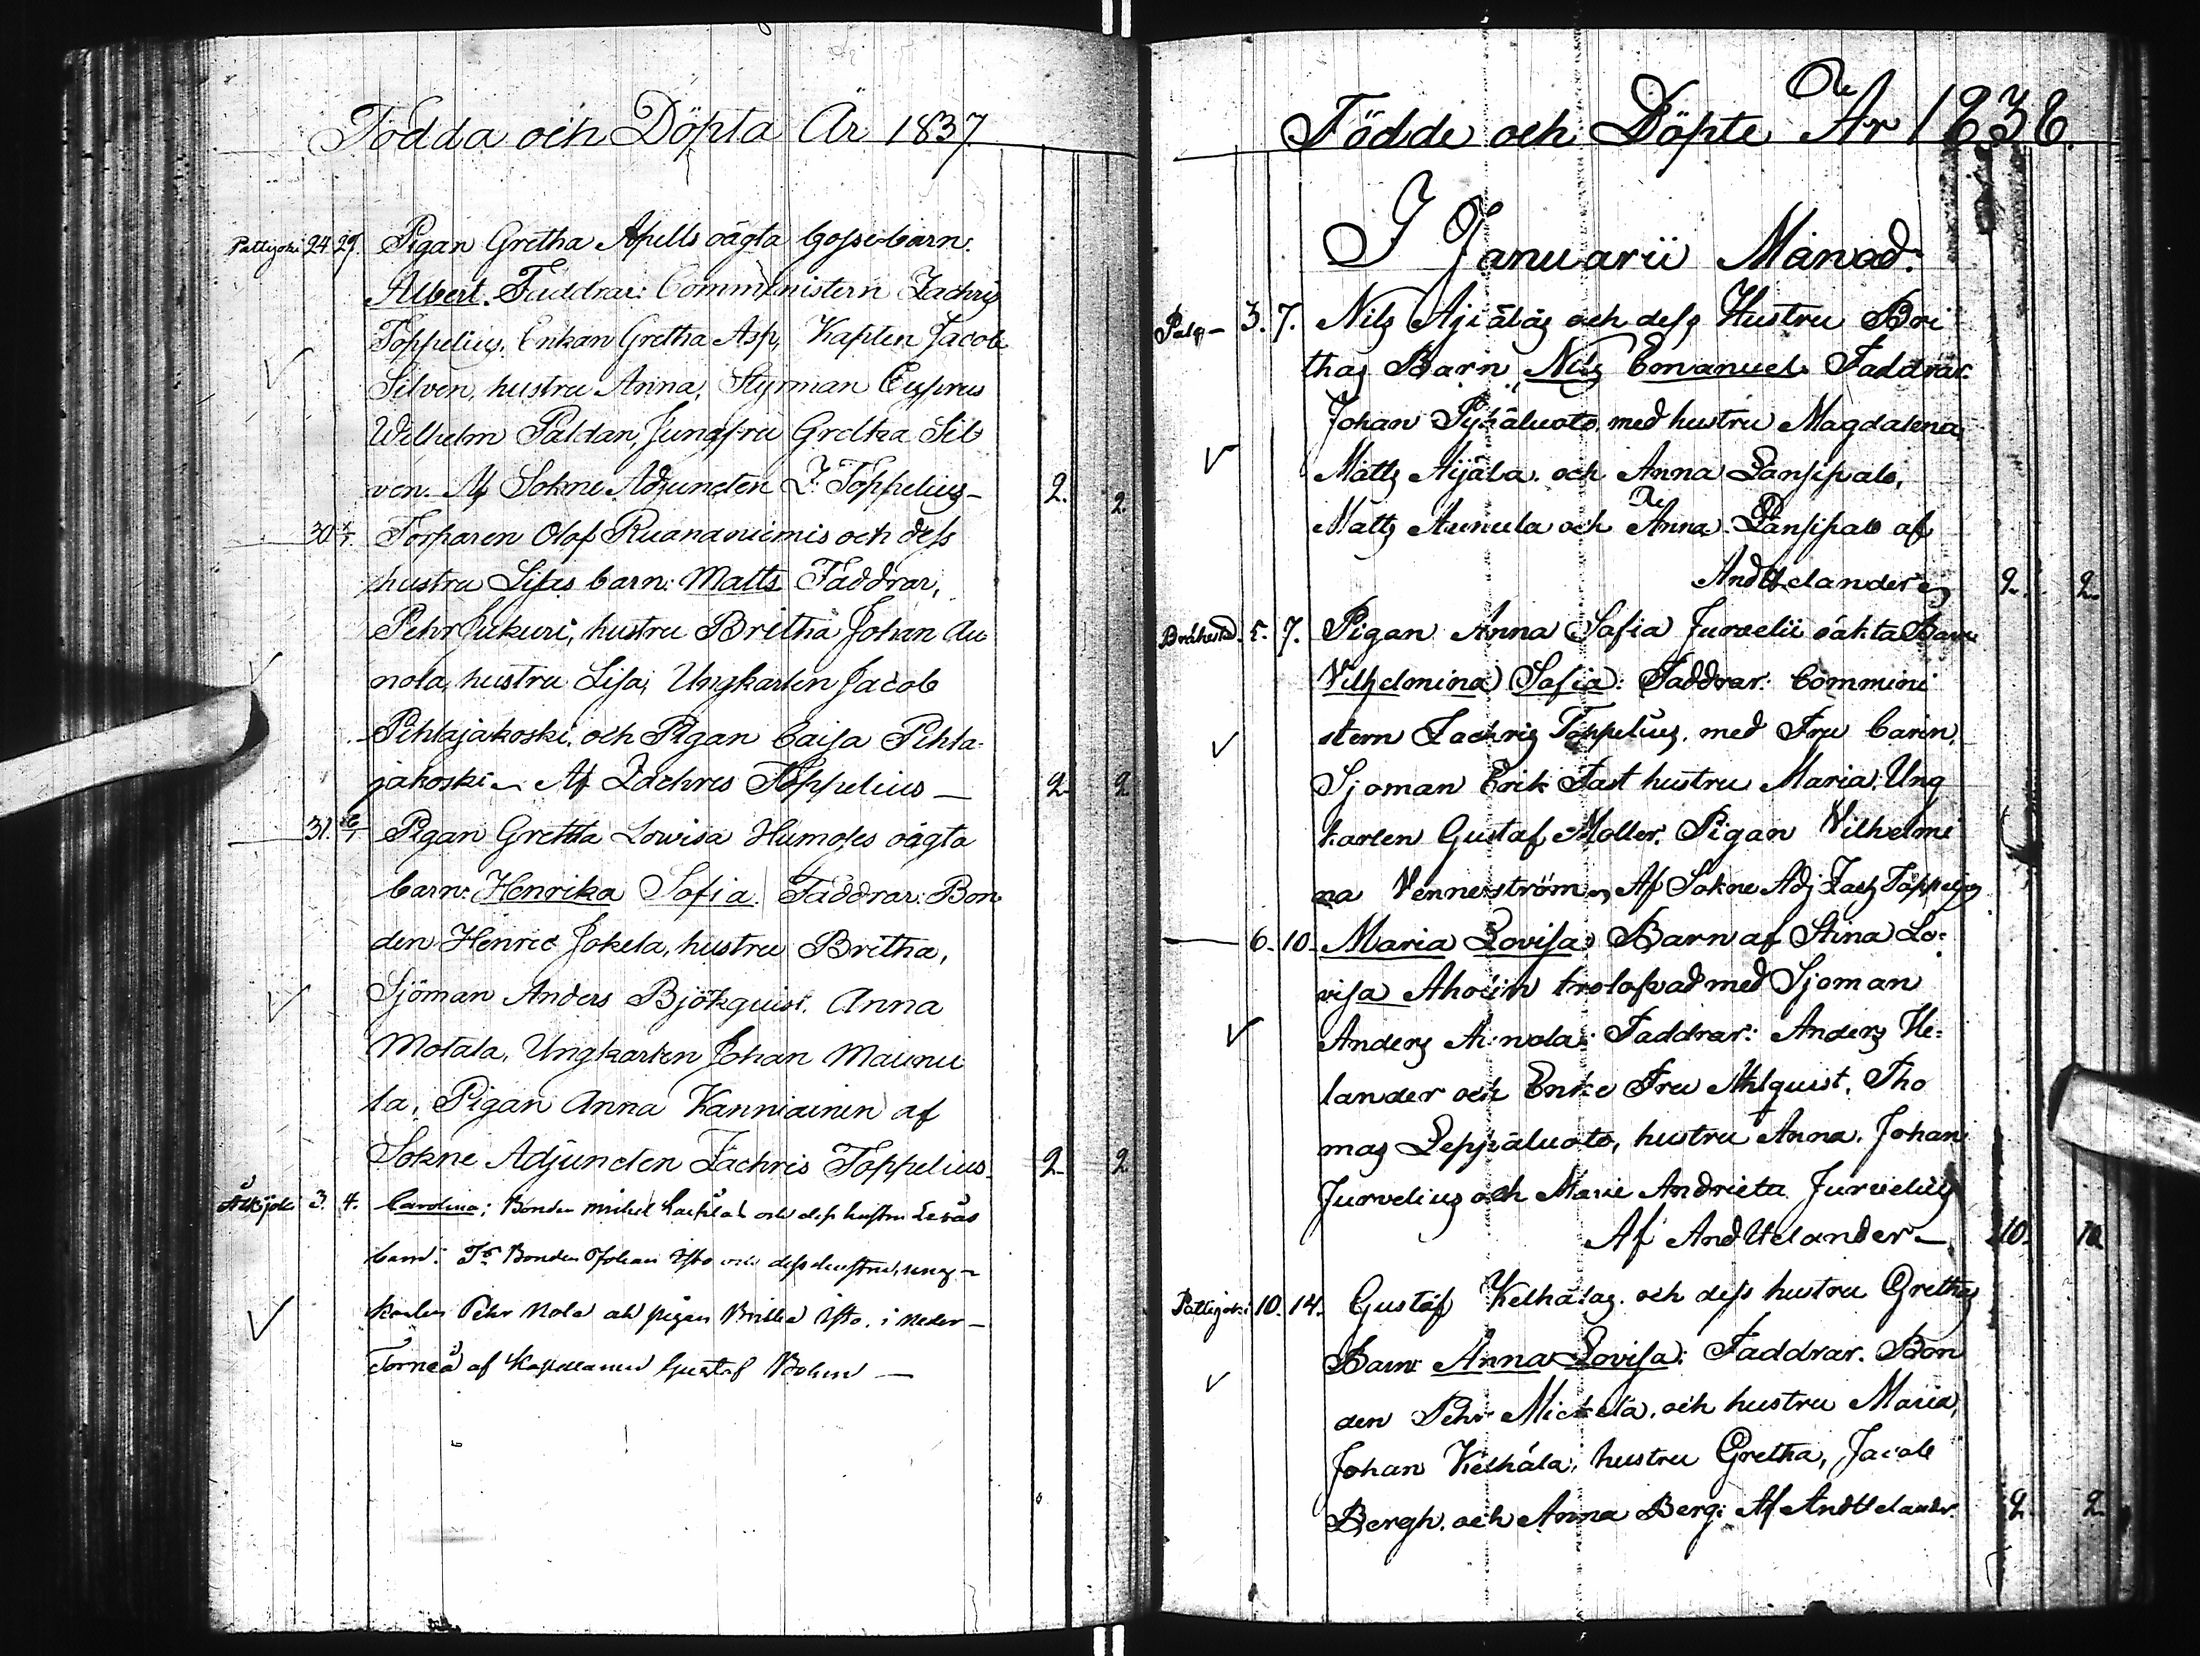 Födda och Döpta År 1837
Pattijoki 24. 29. Pigan Gretha Apells oägta Gossebarn:
Albert. Faddrar: Comministern Zachris
Toppelius, Enkan Gretha Asp, Kapten Jacob
Silven, hustru Anna, Styrman Cuprus
Wilhelm Paldan, Jungfru Gretha Sil
ven. Af Sokne Adjuncten Z. Toppelius – 2. 2
30. Torparen Olof Ruonaniemis och dess
hustru Lisas barn: Matts Faddrar,
Pehr Jukuri, hustru Britha Johan Au
nola, hustru Lisa, Ungkarlen Jacob
Pihlajakoski, och Pigan Caisa Pihla-
jakoski – Af Zachris Toppelius – 2 2
31. Pigan Gretha Lovisa Humoles oägta
barn: Henrika Sofia. Faddrar: Bon
den Henric Jokela, hustru Britha,
Sjöman Anders Björkquist. Anna
Motala, Ungkarlen Johan Maunu
la, Pigan Anna Kanniainen af
Sokne Adjuncten Zachris Toppelius. 2 2
3. 4. Carolina; Bonden Mickel och dess hustru
barn: Fr Bonden Johan Ylto och dess hustru, ung-
karlen Pehr Nola och pigan Britha Ylto. i Neder-
Torneå af Kapellanen Gustaf Bohm –
Födde och Döpte År 1838.
I Januarii Månad:
Palo – 3. 7. Nils Äijäläs och dess Hustru Bri
thas Barn Nils Emanuel Faddrar:
Johan Pyhäluoto med hustru Magdalena,
Matts Äijälä och Anna Lansipalo,
Matts Aunula och Anna Lansipalo af
And Helander 2. 2
Brahestad. 5. 7. Pigan Anna Sofia Jurvelii oäkta Barn
Vilhelmina Sofia: Faddrar: Commini
stern Zachris Toppelius, med Fru Carin.
Sjoman Erik Fast hustru Maria, Ung
karlen Gustaf Moller. Pigan Vilhelmi
na Vennerström, Af Sokne Adj. Zach Toppelius
6. 10. Maria Lovisa Barn af Stina Lo-
visa Aholin trolofvad med Sjoman
Anders Ainola: Faddrar: Anders He-
lander och Enke Fru Ahlquist, Tho
mas Leppäluoto, hustru Anna. Johan
Jurvelius och Marie Andrieta Jurvelius
Af And Helander – 10. 10
Pattijoki 10. 14. Gustaf Keihäläs och dess hustru Grethas
Barn Anna Lovisa: Faddrar. Bon
den Pehr Mickela, och hustru Maria,
Johan Keihälä, hustru Gretha, Jacob
Bergh. och Anna Berg: Af And Helander. 2. 2